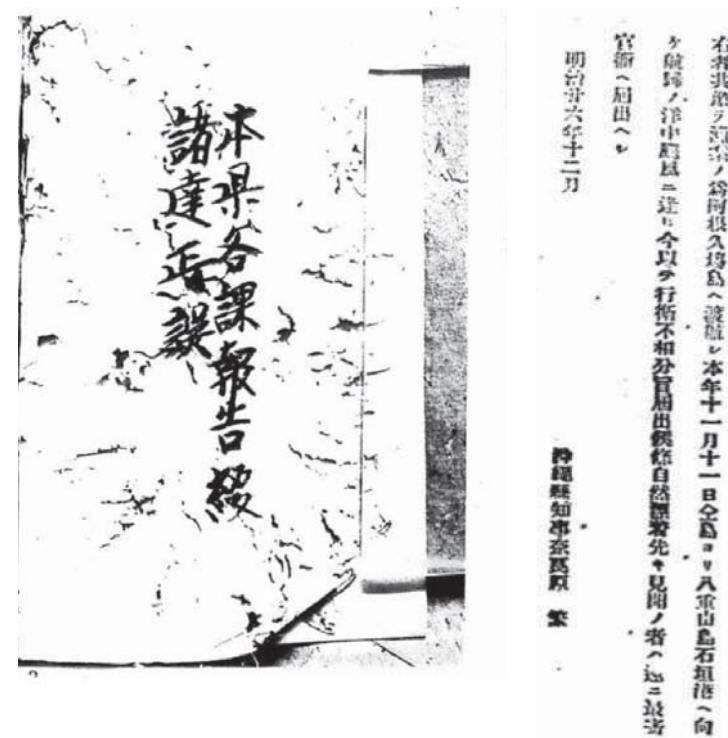 本県各課報告綴
諸達正誤
ノ為胡根久塲島ヘ渡航シ本年十一月十一日仝島ヨリ八重山島石垣港ヘ向
ケ航歸ノ洋中颶風ニ逢ヒ今以テ行衛不相分旨届出候條自然漂着先キ見聞ノ者ハ速ニ最寄
官衙ヘ届出ヘシ
明治廿六年十二月
沖繩縣知事奈良原 繁